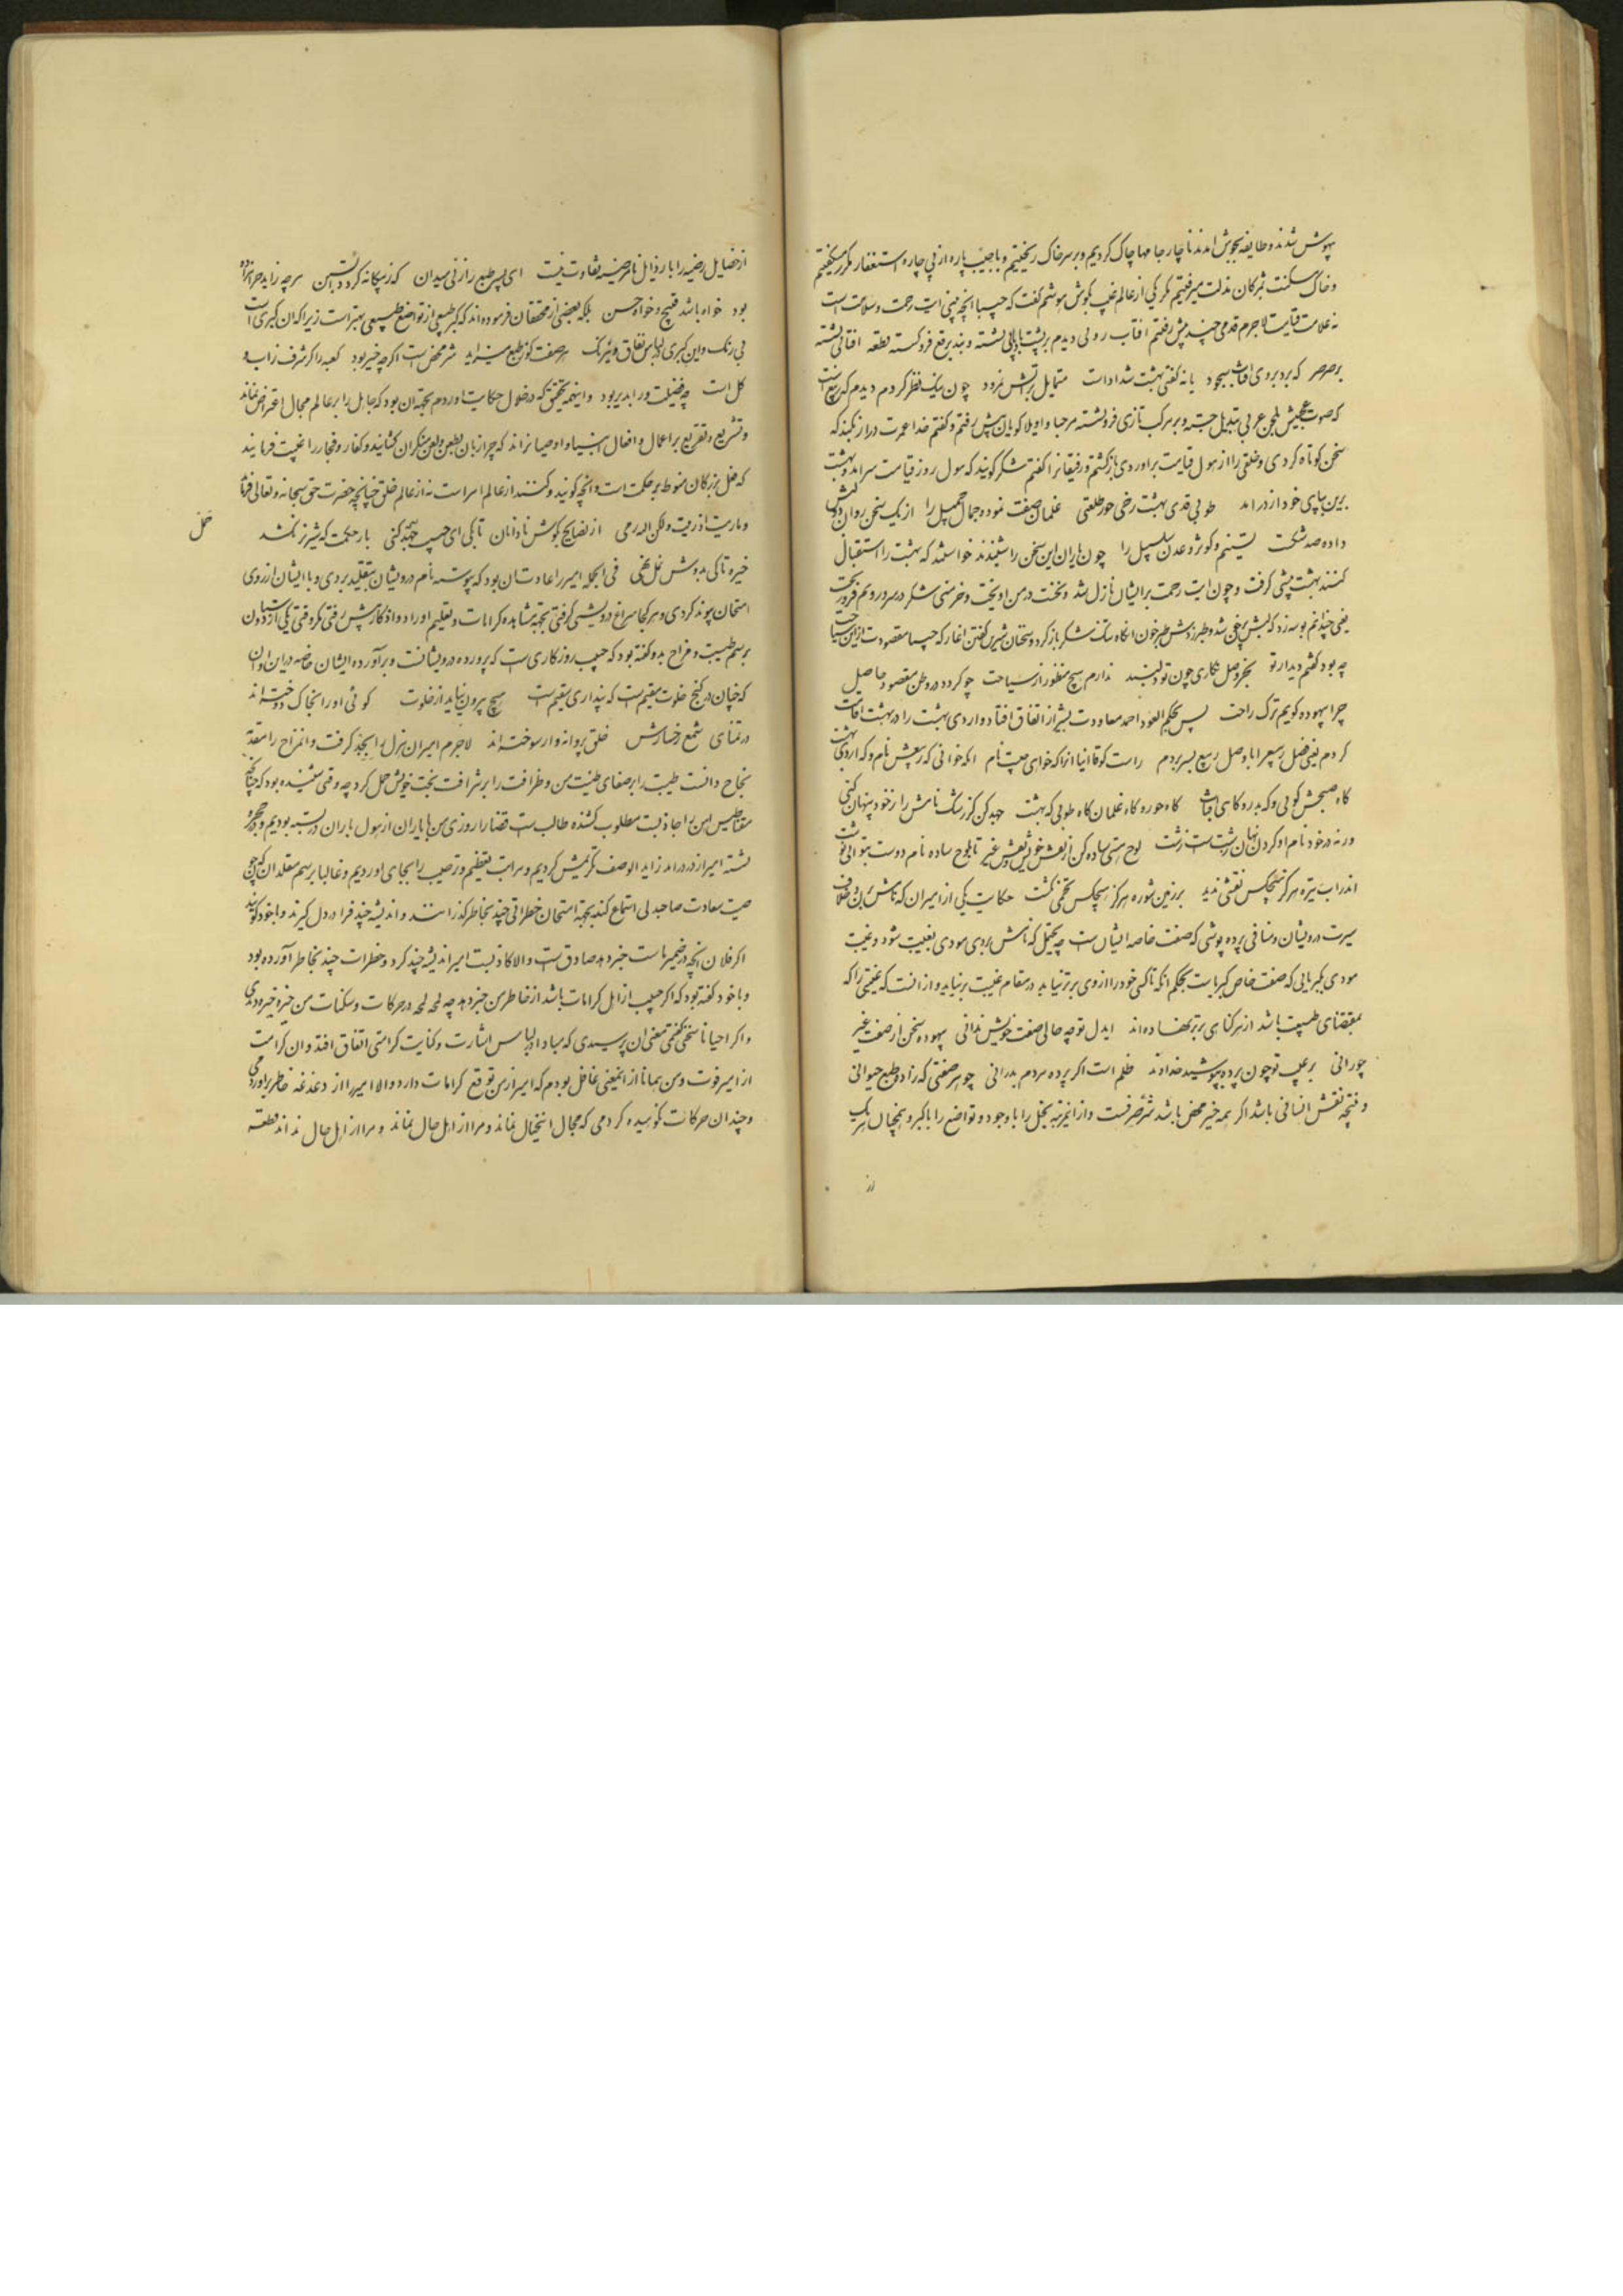 بیهوش شدند و طایفه بجوش امدند ناچار جامها چاک کردیم و بر سر خاک ریختیم و با جیب پاره از پی چاره استغفار مکرر میگفتیم
و خاک مسکنت بمژکان مذلت میرفتیم مکر یکی از عالم غیب بکوش هوشم گفت که حبیبا انچه بینی ایت رحمت و سلامت است
نه علامت قیامت لاجرم قدمی چند پیش رفتم افتاب روئی دیدم بر پشت نشسته و بند برقع فروکسته قطعه
بر صرصر که بد بروی افتاب یا نه کفتی بهشت شداد است متمایل بر چون نیک نظر کردم دیدم که ربیع است
که صوت بلحن عربی تبدیل جسته و بر مرکب تازی فرو نشسته مرحبا و اویلا کویان پیش رفتم و کفتم خدا عمرت دراز کند که
سخن کوتاه کردی و خلقی را از هول قیامت براوردی بازکشتم و رفیقانرا کفتم شکر کوئید که هول روز قیامت سر امد و بهشت
برین بپای خود از در امد طوبی قدی بهشت رخی حور طلعتی غلمان صفت نموده جمال جمیل را از یک سخن روان
داده صد شکست تسنیم و کوثر و عدن و سلسبیل را چون یاران این سخن را شنیدند خواستند که بهشت را استقبال
کنند بهشت پیشی کرفت و چون ایت رحمت بر ایشان نازل شد و نخست در من اویخت و خرمنی شکر در سر و رویم فرو ریخت
یعنی چندانم بوسه زد که لبش پر خون انکاه تنک شکر باز کرد و سخنان شیرین کفتن اغاز که حبیبا مقصودت ازین سیاحت
چه بود کفتم دیدار تو بجز وصل نکاری چون تو دلبند ندارم هیچ منظور از سیاحت چو کردد در وطن مقصود حاصل
چرا بیهوده کویم ترک راحت پس بحکم العود احمد معاودت بشیراز اتفاق افتاد و اردی بهشت را در بهشت اقامت
کردم یعنی فصل ربیع را با وصل ربیع بسر بردم راست کو قاانیا انرا که خوانی چیست نام انکه خوانی که ربیعش نام و که اردی بهشت
کاه صبحش کوئی و که بدر و کاهی افتاب کاه حور و کاه غلمان کاه طوبی که بهشت جهد کن کز رشک نامش را ز خود پنهان کنی
ور نه در خود نام او کردن نهان زشت است زشت لوح هستی ساده کن از نقش خویش و نقش غیر تا بلوح ساده نام دوست بتوانی نوشت
اندر اب تیره هرکز هیچکس نقشی ندید بر زمین شوره هرکز هیچکس تخمی نکشت حکایت یکی از امیران که نامش بردن خلاف
سیرت درویشان و منافی پرده پوشی که صفت خاصه ایشان است چه یحتمل که نامش بردی مودی بغیبت شود و غیبت
مودی بکبریائی که صفت خاص کبریاست بحکم انکه تا کسی خود را از وی برتر نیابد در مقام غیبت برنیاید و از انست که غیبتی را که
بمقتضای طبیعت باشد از هر کناهی برتر نهاده اند ایدل تو چه حالی صفت خویش ندانی بیهوده سخن از صفت غیر
چو رانی بر عیب تو چون پرده بپوشید خداوند ظلم است اکر پرده مردم بدرانی چو هر صفتی که زاده طبع حیوانی
و نتیجه نفس انسانی باشد اکر همه خیر محض باشد شر صرفست و از اینرتبه بخل را با وجود و تواضع را با کبر و همچنان هر یک
از
از خصایل رضیه را با رذایل نامرضیه تفاوت نیست ای پسر طبع را زنی میدان که ز بیکانه کردد ابستن هر چه زاید حرامزاده
بود خواه باشد قبیح و خواه حسن بلکه بعضی از محققان فرموده اند که کبر طبیعی از تواضع طبیعی بهتر است زیرا که ان کبری است
بی رنک و این کبری بلباس نفاق و نیرنک هر صفت کز طبع میزاید شر محض است اکرچه خیر بود کعبه را کر شرف ز اب و
کل است چه فضیلت ورا بدیر بود و اینهمه تحقیق که در خلال حکایت اوردم بجهة ان بود که جاهل را بر عالم مجال اعتراض نماند
و تشریع و تقریع بر اعمال و افعال انبیا و اوصیا نراند که چرا زبان بطعن و لعن منکران کشایند و کفار و فجار را غیبت فرمایند
که فعل بزرکان منوط بر حکمت است و انچه کویند و کنند از عالم امر است نه از عالم خلق چنانچه حضرت حق سبحانه و تعالی فرماید
و ما رمیت اذ رمیت ولکن الله رمی از نصایح بکوش نادانان تا بکی ای حبیب جهد کنی بار حکمت که شیر نر نکشد
حمل
خیره تا کی بدوش نمل نهی فی الجمله امیر را عادت ان بود که پیوسته نام درویشان بتقلید بردی و با ایشان از روی
امتحان پیوند کردی و هر کجا سراغ درویشی کرفتی بجهة مشاهده کرامات و تعلیم اوراد و اذکار پیش رفتی مکر وقتی یکی از دوستان
برسم طیبت و مزاح بدو کفته بود که حبیب روزکاری است که پرورده درویشانست و برآورده ایشان خاصه در این اوان
که چنان در کنج خلوت مقیم است که پنداری سقیم است هیچ بیرون نیاید از خلوت کوئی او را بخاک دوخته اند
در تمنای شمع رخسارش خلق پروانه وار سوخته اند لاجرم امیر ان هزل را بجد کرفت و انمزاح را مقدمه
نجاح دانست طیبت را بر صفای طینت من و ظرافت را بر شرافت بخت خویش حمل کرد چه وقتی شنیده بود که چنانکه
مقناطیس اهن را جاذبست مطلوب کشنده طالب است قضا را روزی من با یاران از هول باران در بسته بودیم و در حجره
نشسته امیر از در درامد زاید الوصف تکریمش کردیم و مراتب تعظیم و ترحیب را بجای اوردیم و غالبا برسم مقلدان که چون
صیت سعادت صاحبدلی استماع کنند بجهة امتحان خطراتی چند بخاطر کذرانند و اندیشه چند فرا دل کیرند و با خود کویند
اکر فلان انچه در ضمیر ماست خبر دهد صادق است والا کاذبست امیر اندیشه چند کرد و خطرات چند بخاطر آورده بود
و با خود کفته بود که اکر حبیب از اهل کرامات باشد از خاطر من خبر دهد چه لمحه لمحه در حرکات و سکنات من خیره خیره دیدی
و اکر احیانا سخنی کفتمی معنی ان پرسیدی که مبادا در لباس اشارت و کنایت کرامتی اتفاق افتد و ان کرامت
از امیر فوت و من همانا از انمعنی غافل بودم که امیر از من توقع کرامات دارد والا امیر را از دغدغه خاطر براوردمی
و چندان حرکات نکوهیده کردمی که مجال انتخیال نماند و مرا از اهل حال نداند قطعه